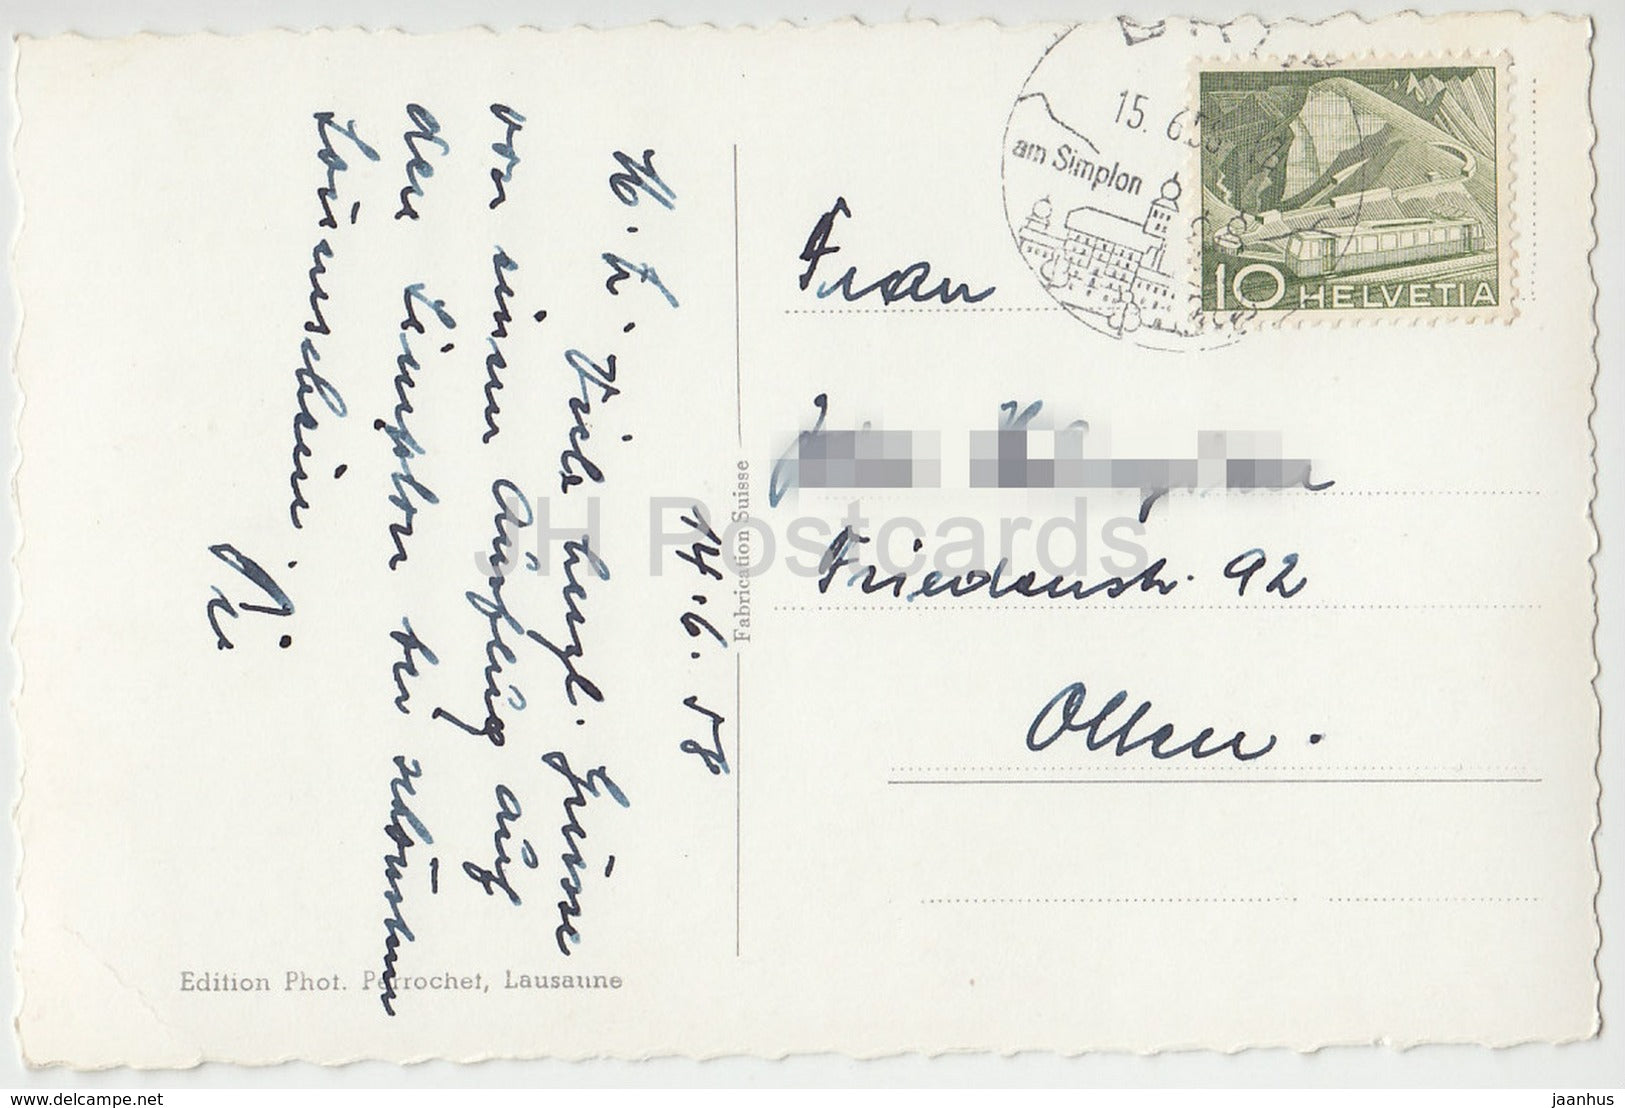 14.6.58
H. L. Viele herzl. Grüsse
von einem Ausflug auf
den Simplon bei schönstem
Sonnenschein
Fabrication Suisse
Edition Phot. Perrochet, Lausanne
15. 6. 58
am Simplon
10 HELVETIA
Frau
Friedenstr. 92
Olten.
JH Postcards
www.delcampe.net
jaanhus